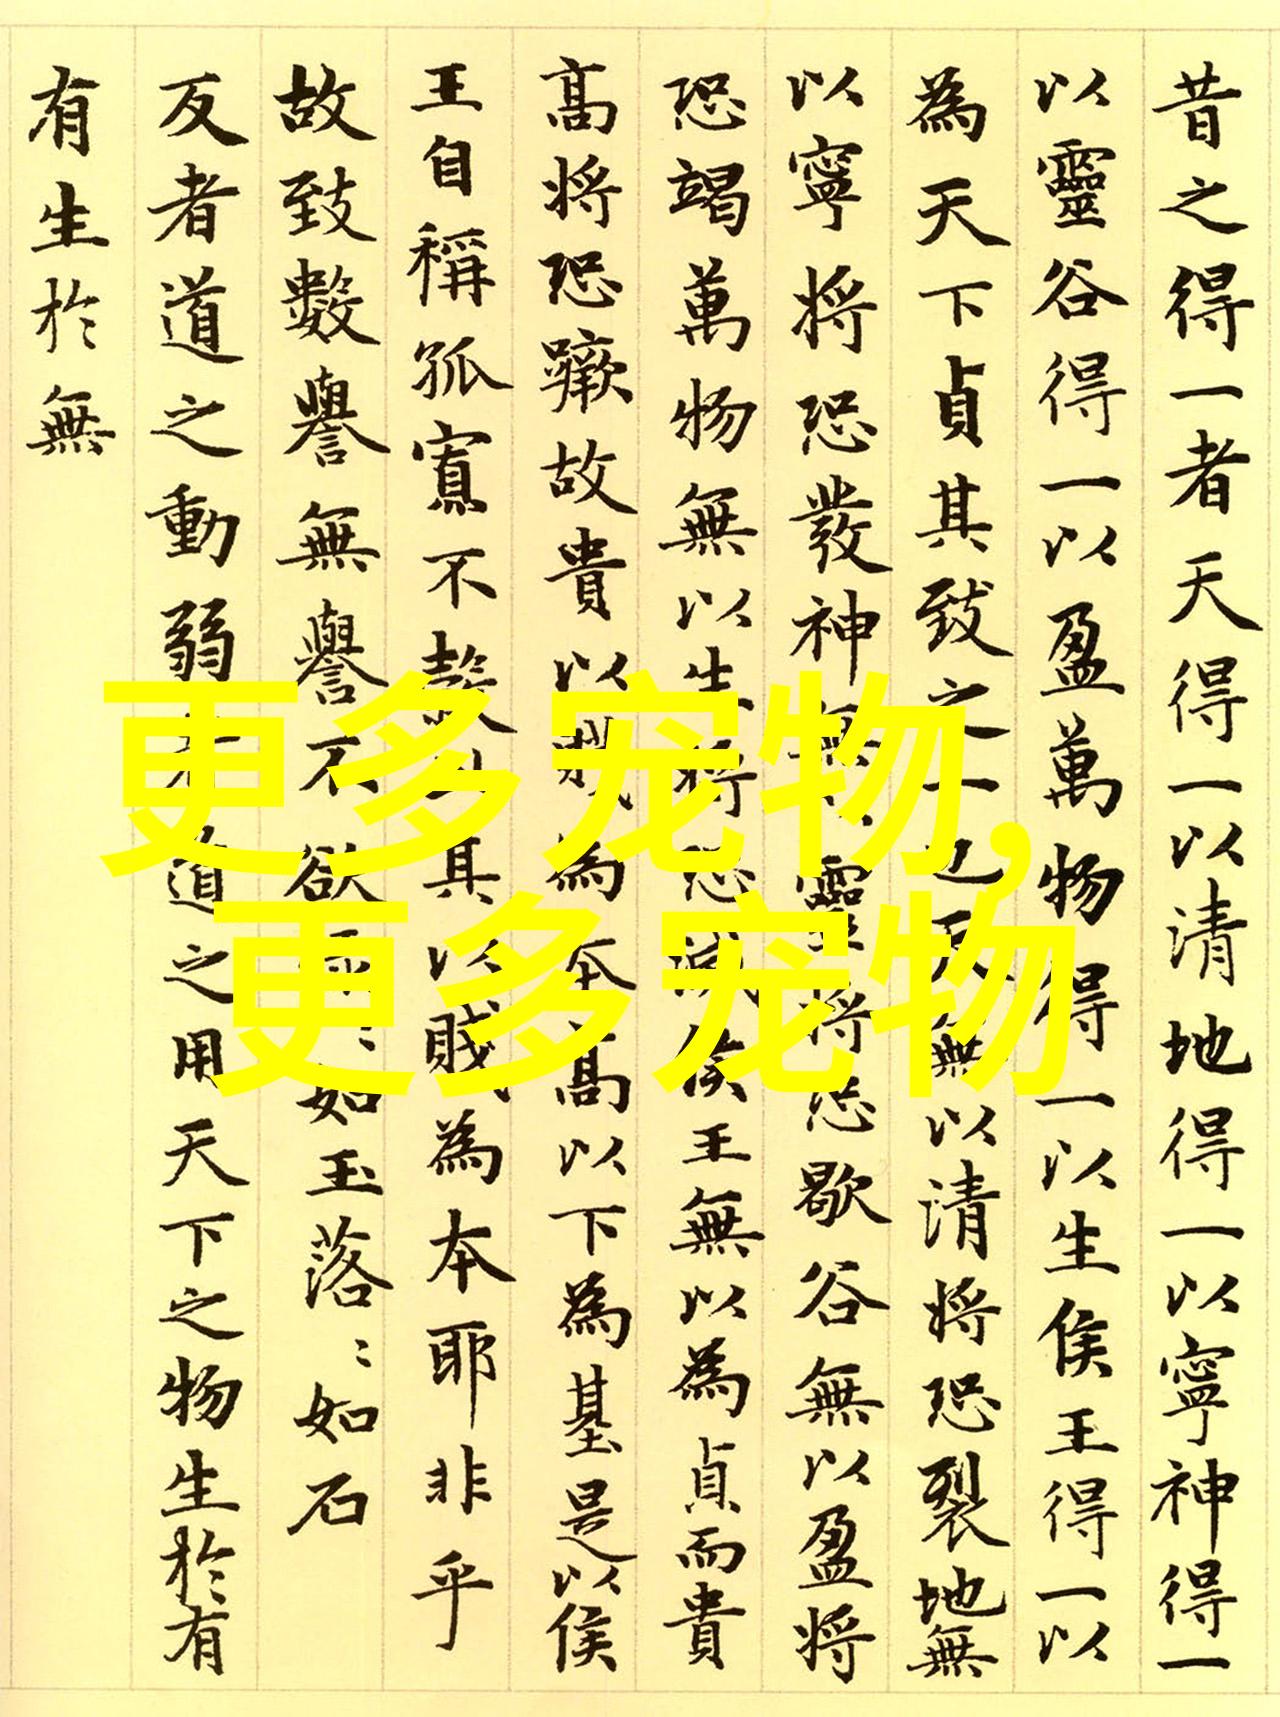 昔之得一者天得一以清地得一以寧神得一
以靈谷得一以盈萬物得一以生侯王得一以
為天下貞其致之一也天無以清將恐裂地無
以寧將恐發神無以靈將恐歇谷無以盈將
恐竭萬物無以生將恐滅侯王無以為貞而貴
高將恐蹶故貴以賤為本高以下為基是以侯
王自稱孤寡不穀此其以賤為本耶非乎
故致數譽無譽不欲如玉落:如石
反者道之動弱者道之用天下之物生於有
有生於無
更多宠物,
更多宠物